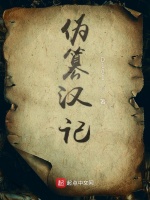 伪
篡
汉
记
起点中文网